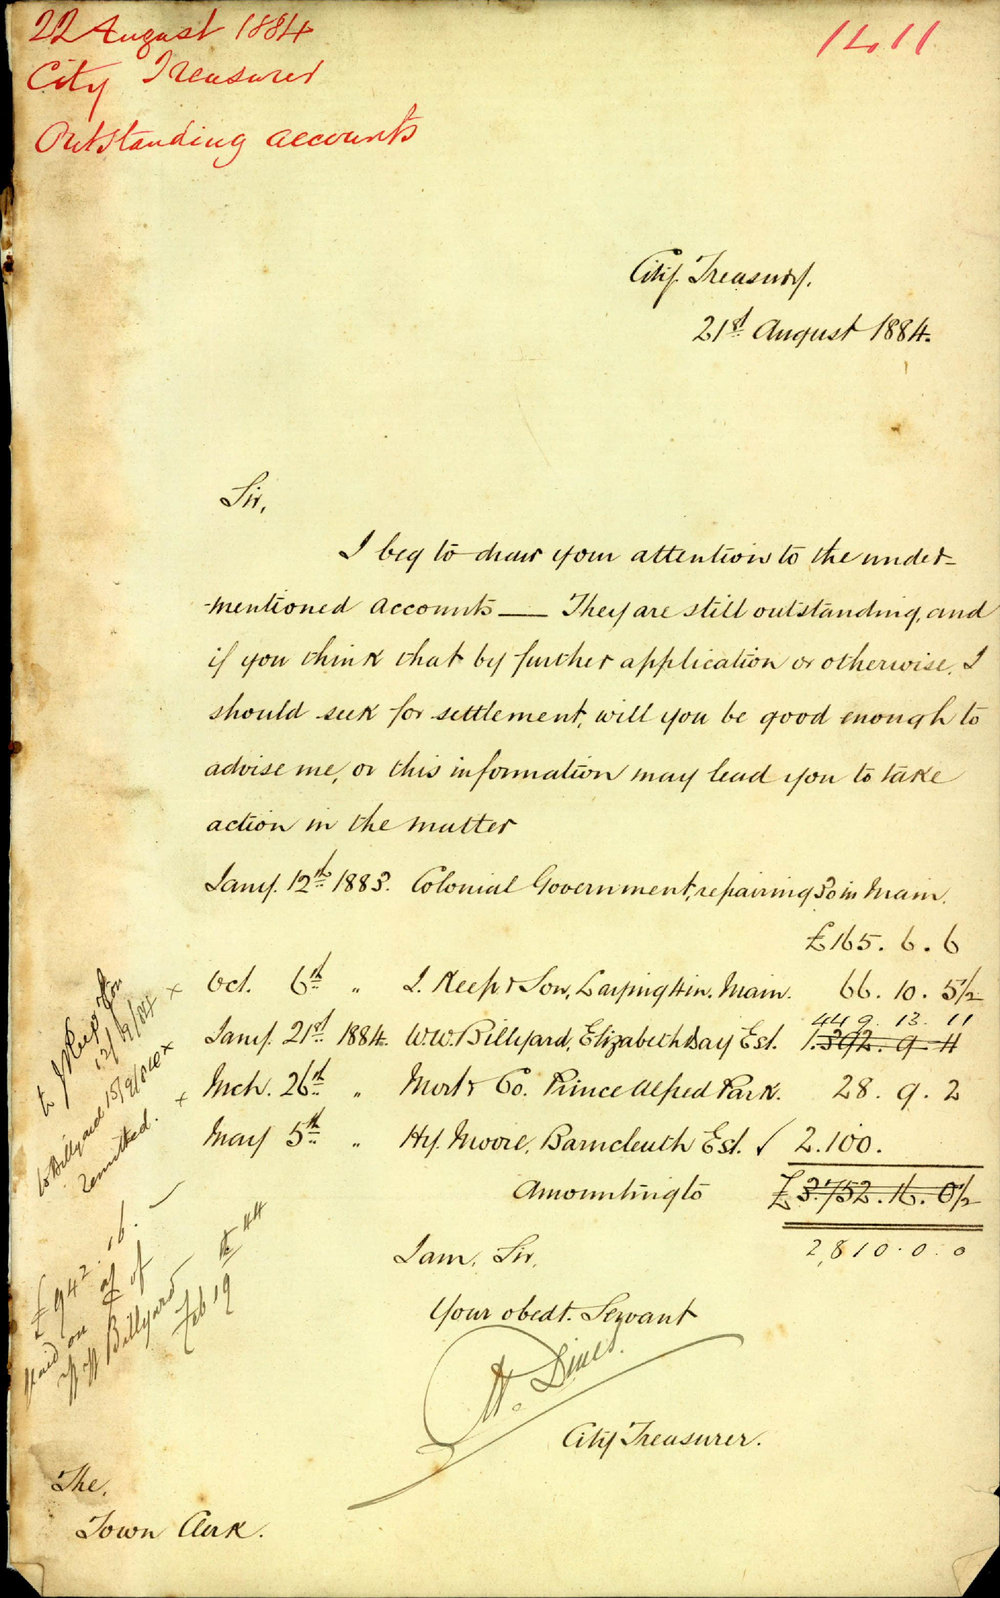 22 August 1884
City Treasurer
Outstanding accounts
1411
City Treasury.
21st August 1884.
Sir,
I beg to draw your attention to the under-
-mentioned accounts — They are still outstanding, and
if you think that by further application or otherwise, I
should seek for settlement, will you be good enough to
advise me, or this information may lead you to take
action in the matter
Jany. 12th 1883. Colonial Government, repairing 30 in Main.
£165. 6. 6
Oct. 6th " J. Keep & Son, Laying 4 in. Main. 66. 10. 5½
449. 13. 11
Jany. 21st 1884. W.W. Billyard, Elizabeth Bay Est. 1.392. 9. 11
Mch. 26th " Mort & Co. Prince Alfred Park. 28. 9. 2
May 5th " Hy. Moore, Barncleuth Est. √ 2.100.
Amounting to £3.752. 16. 0½
2,810. 0. 0
I am, Sir,
Your obedt. Servant
City Treasurer.
The
Town Clerk.
to J Keep & Son
12/9/84
to Billyard 15/9/84
remitted.
£942. 16. —
paid on a/c of
W W Billyard
Feb 19